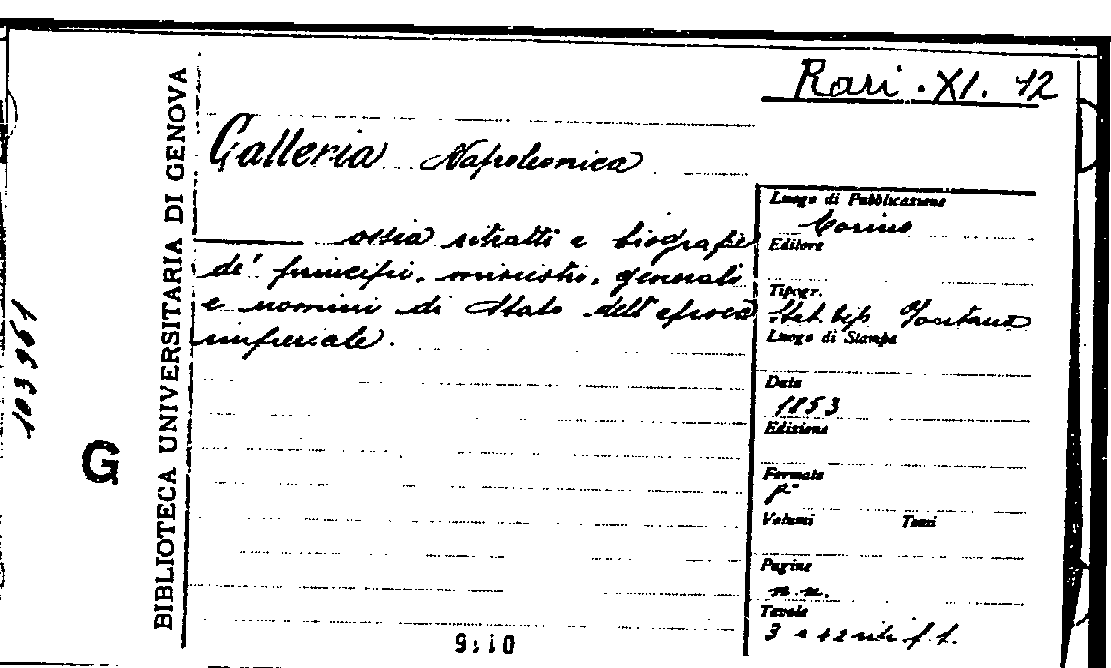 Rari. XI. 12
BIBLIOTECA UNIVERSITARIA DI GENOVA
103961
G
Galleria Napoleonica
ossia ritratti e biografie
de' principi, ministri, generali
e uomini di Stato dell'epoca
imperiale.
Luogo di Pubblicazione
Torino
Editore
Tipogr.
Stab. tip. Fontana
Luogo di Stampa
Data
1853
Edizione
Formato
Volumi Tomi
Pagine
n. n.
Tavole
3 f. t.
9:10